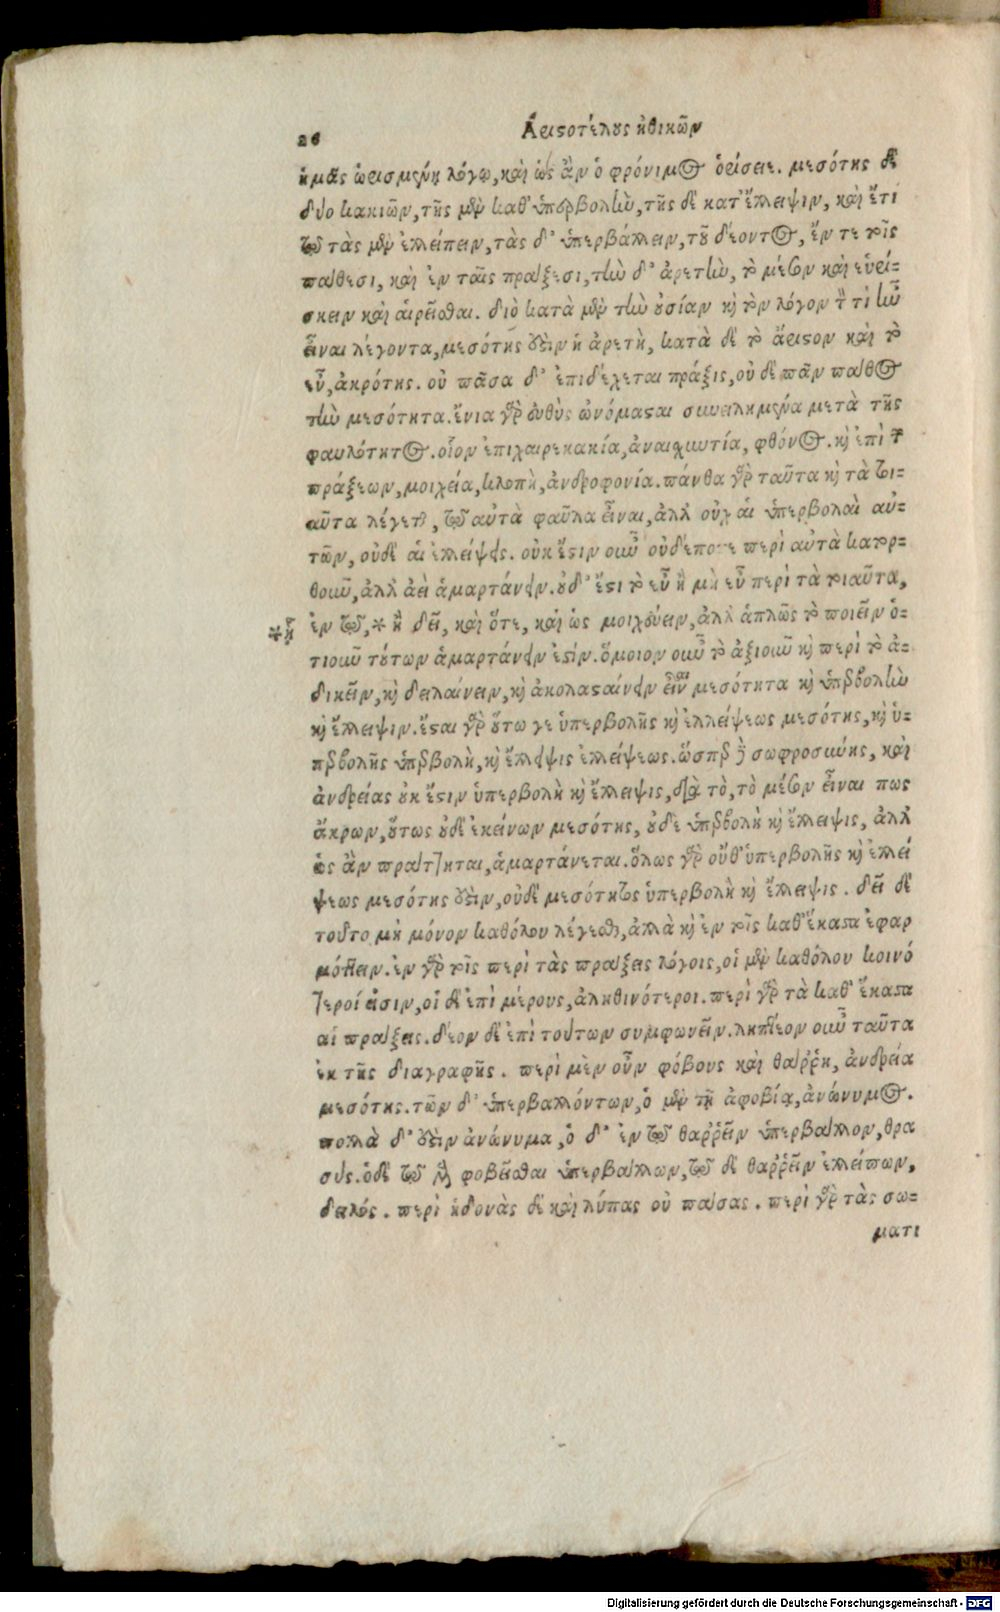 26 Ἀριστοτέλους ἠθικῶν
ἡμᾶς ὡρισμένη λόγῳ, καὶ ὡς ἂν ὁ φρόνιμος ὁρίσειε. μεσότης δὲ
δύο κακιῶν, τῆς μὲν καθ' ὑπερβολὴν, τῆς δὲ κατ' ἔλλειψιν, καὶ ἔτι
τῷ τὰς μὲν ἐλλείπειν, τὰς δ' ὑπερβάλλειν, τοῦ δέοντος, ἔν τε τοῖς
πάθεσι, καὶ ἐν ταῖς πράξεσι, τὴν δ' ἀρετὴν, τὸ μέσον καὶ εὑρί-
σκειν καὶ αἱρεῖσθαι. διὸ κατὰ μὲν τὴν οὐσίαν καὶ τὸν λόγον τὸν τί ἦν
εἶναι λέγοντα, μεσότης ἐστὶν ἡ ἀρετὴ, κατὰ δὲ τὸ ἄριστον καὶ τὸ
εὖ, ἀκρότης. οὐ πᾶσα δ' ἐπιδέχεται πράξις, οὐδὲ πᾶν πάθος
τὴν μεσότητα. ἔνια γὰρ εὐθὺς ὠνόμασται συνειλημμένα μετὰ τῆς
φαυλότητος. οἷον ἐπιχαιρεκακία, ἀναισχυντία, φθόνος. καὶ ἐπὶ τῶν
πράξεων, μοιχεία, κλοπὴ, ἀνδροφονία. πάντα γὰρ ταῦτα καὶ τὰ τοι-
αῦτα λέγεται, τῷ αὐτὰ φαῦλα εἶναι, ἀλλ' οὐχ αἱ ὑπερβολαὶ αὐ-
τῶν, οὐδὲ αἱ ἐλλείψεις. οὐκ ἔστιν οὖν οὐδέποτε περὶ αὐτὰ κατορ-
θοῦν, ἀλλ' ἀεὶ ἁμαρτάνειν. οὐδ' ἔστι τὸ εὖ ἢ μὴ εὖ περὶ τὰ τοιαῦτα,
*ἣν ἐν τῷ, * ἢ δεῖ, καὶ ὅτε, καὶ ὡς μοιχεύειν, ἀλλ' ἁπλῶς τὸ ποιεῖν ὁ-
τιοῦν τούτων ἁμαρτάνειν ἐστίν. ὅμοιον οὖν τὸ ἀξιοῦν καὶ περὶ τὸ ἀ-
δικεῖν, καὶ δειλαίνειν, καὶ ἀκολασταίνειν εἶναι μεσότητα καὶ ὑπερβολὴν
καὶ ἔλλειψιν. ἔσται γὰρ οὕτω γε ὑπερβολῆς καὶ ἐλλείψεως μεσότης, καὶ ὑ-
περβολῆς ὑπερβολὴ, καὶ ἔλλειψις ἐλλείψεως. ὥσπερ δὲ σωφροσύνης, καὶ
ἀνδρείας οὐκ ἔστιν ὑπερβολὴ καὶ ἔλλειψις, διὰ τὸ, τὸ μέσον εἶναι πως
ἄκρων, οὕτως οὐδὲ ἐκείνων μεσότης, οὐδὲ ὑπερβολὴ καὶ ἔλλειψις, ἀλλ'
ὡς ἂν πράττηται, ἁμαρτάνεται. ὅλως γὰρ οὔθ' ὑπερβολῆς καὶ ἐλλεί
ψεως μεσότης ἐστὶν, οὐδὲ μεσότητος ὑπερβολὴ καὶ ἔλλειψις. δεῖ δὲ
τοῦτο μὴ μόνον καθόλου λέγεσθαι, ἀλλὰ καὶ ἐν τοῖς καθ' ἕκαστα ἐφαρ
μόττειν. ἐν γὰρ τοῖς περὶ τὰς πράξεις λόγοις, οἱ μὲν καθόλου κοινό
τεροί εἰσιν, οἱ δὲ ἐπὶ μέρους, ἀληθινότεροι. περὶ γὰρ τὰ καθ' ἕκαστα
αἱ πράξεις. δέον δὲ ἐπὶ τούτων συμφωνεῖν. ληπτέον οὖν ταῦτα
ἐκ τῆς διαγραφῆς. περὶ μὲν οὖν φόβους καὶ θάῤῥη, ἀνδρεία
μεσότης. τῶν δ' ὑπερβαλλόντων, ὁ μὲν τῇ ἀφοβίᾳ, ἀνώνυμος.
πολλὰ δ' ἐστὶν ἀνώνυμα, ὁ δ' ἐν τῷ θαῤῥεῖν ὑπερβάλλον, θρα
σύς. ὁδὲ τῷ μὲν φοβεῖσθαι ὑπερβάλλων, τῷ δὲ θαῤῥεῖν ἐλλείπων,
δειλός. περὶ ἡδονὰς δὲ καὶ λύπας οὐ πάσας. περὶ γὰρ τὰς σω-
ματι
Digitalisierung gefördert durch die Deutsche Forschungsgemeinschaft - DFG